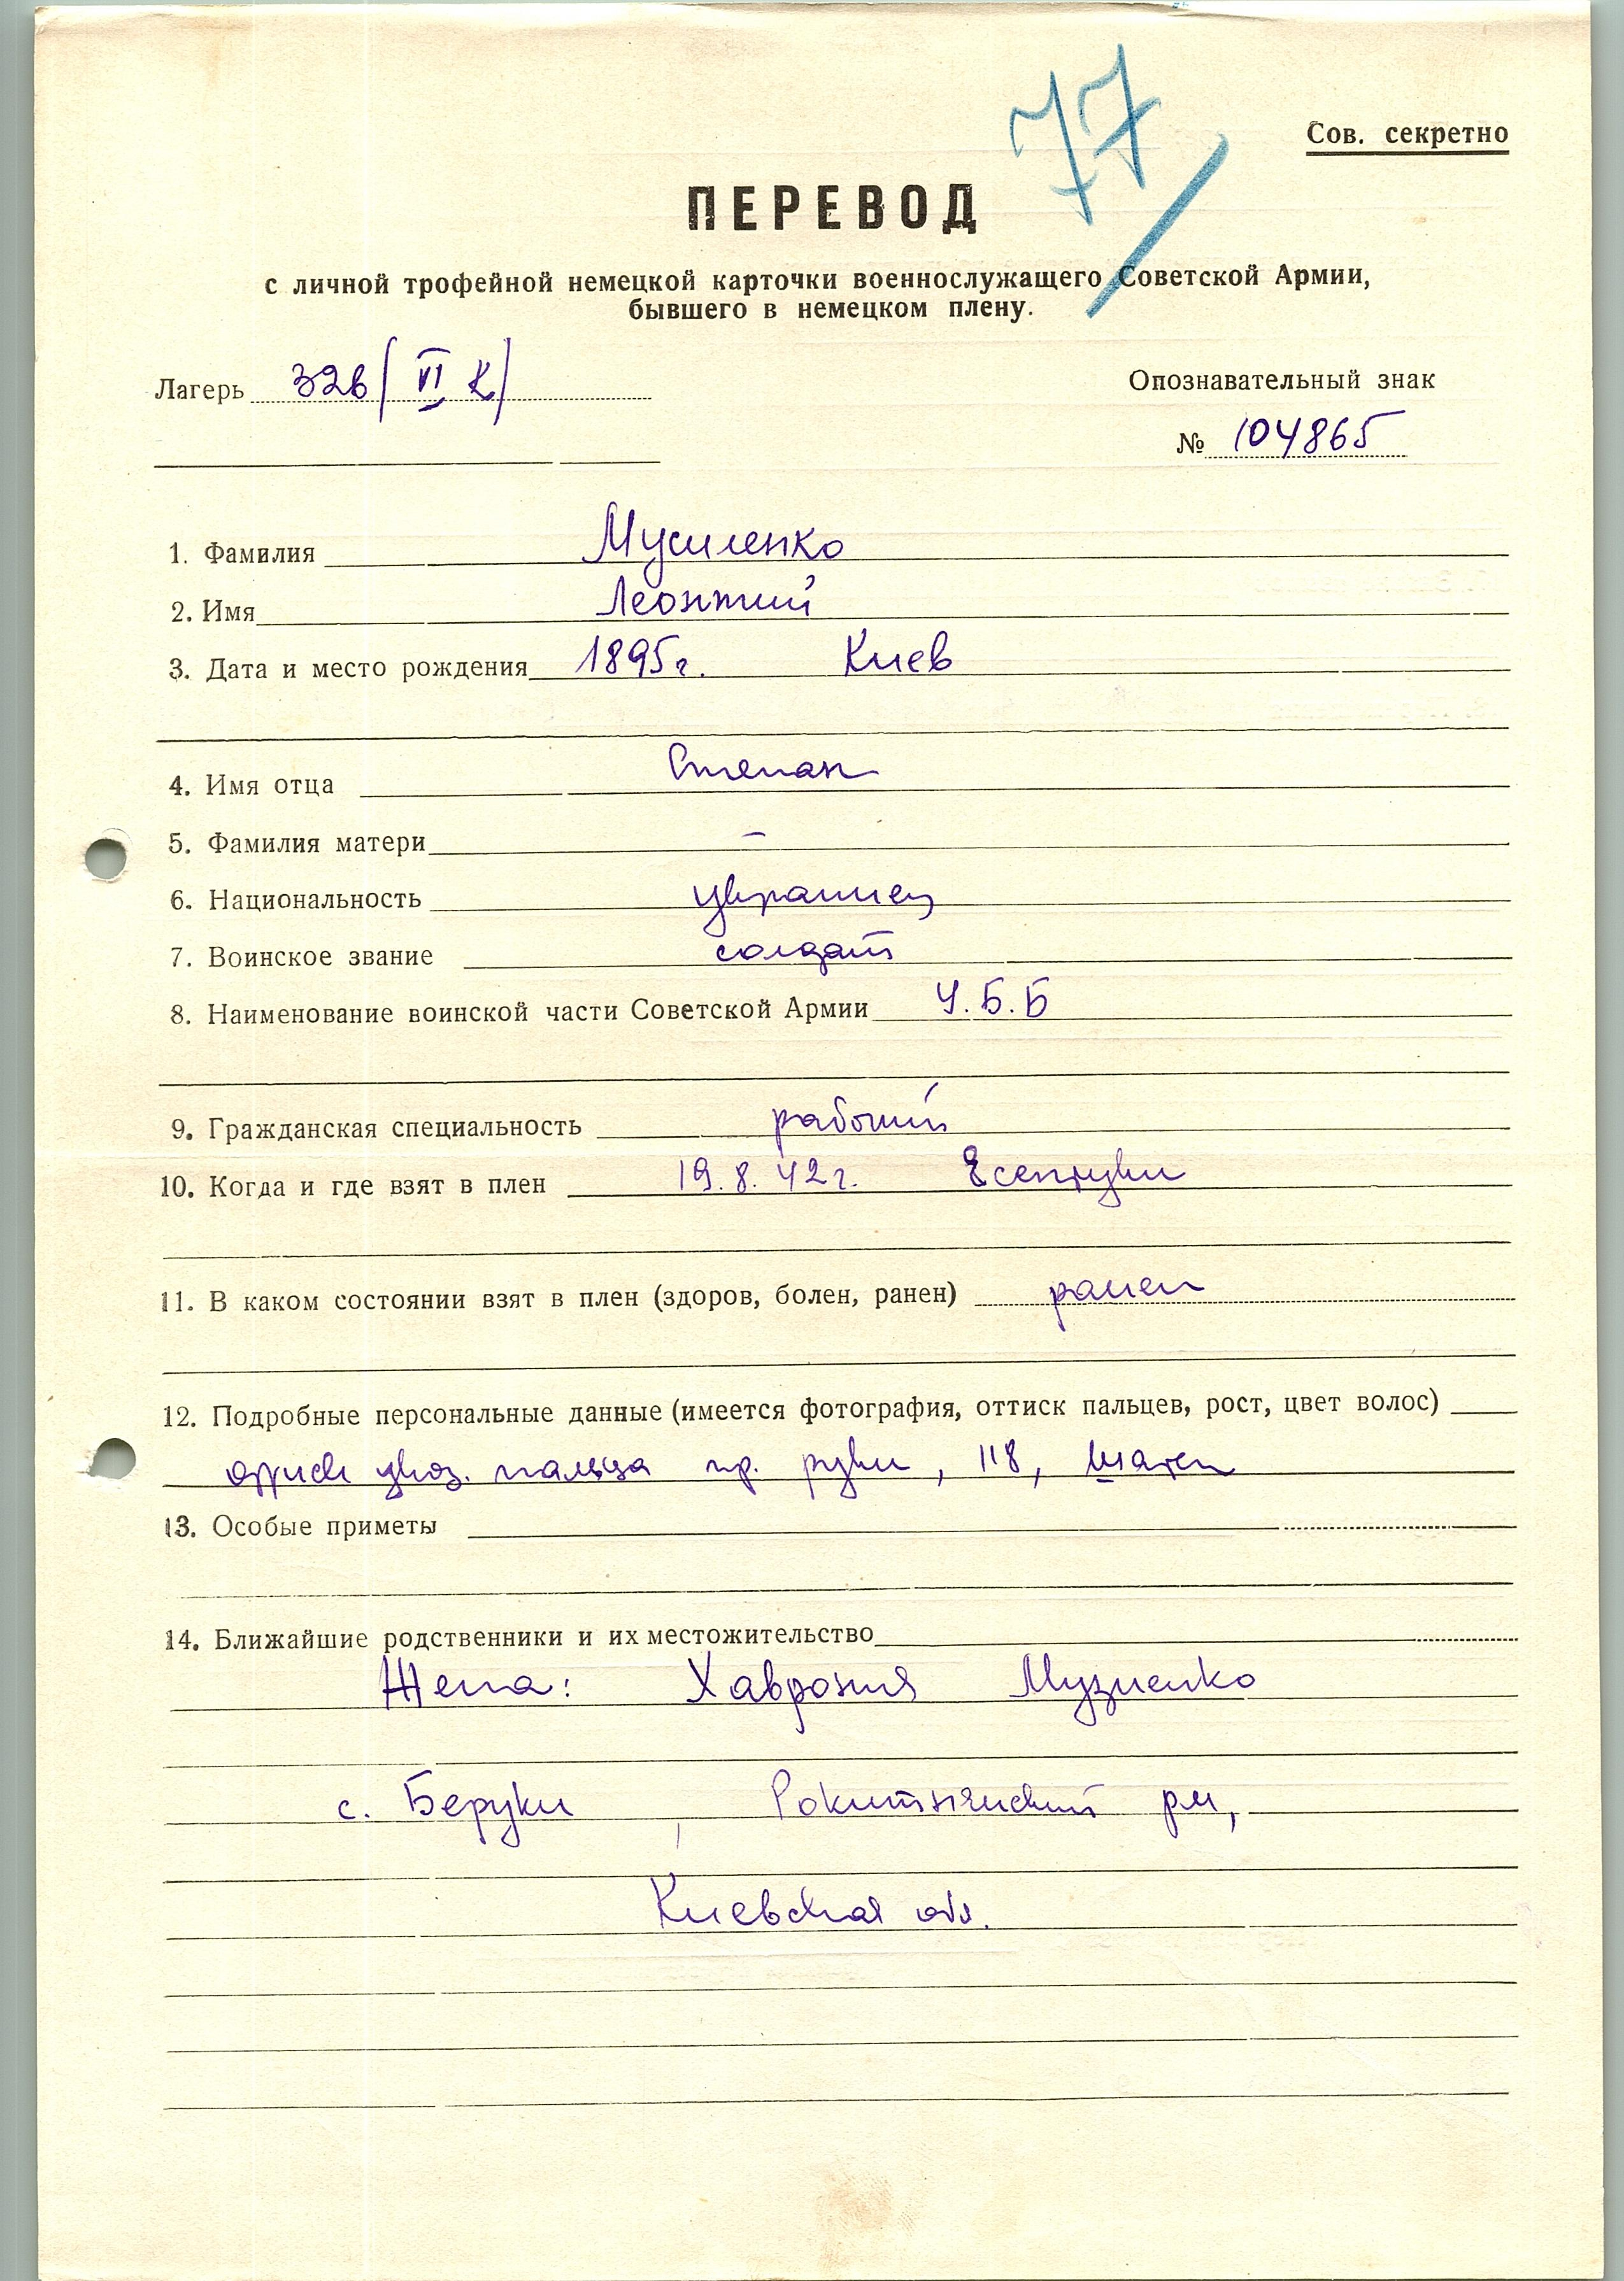 77
Сов. секретно
ПЕРЕВОД
с личной трофейной немецкой карточки военнослужащего Советской Армии,
бывшего в немецком плену.
Лагерь 326 (VI К)
Опознавательный знак
№ 104865
1. Фамилия Мусиенко
2. Имя Леонтий
3. Дата и место рождения 1895г. Киев
4. Имя отца Степан
5. Фамилия матери –
6. Национальность украинец
7. Воинское звание солдат
8. Наименование воинской части Советской Армии У.Б.Б
9. Гражданская специальность рабочий
10. Когда и где взят в плен 19.8.42г. Есентуки
11. В каком состоянии взят в плен (здоров, болен, ранен) ранен
12. Подробные персональные данные (имеется фотография, оттиск пальцев, рост, цвет волос)
оттиск указ. пальца пр. руки, 118, шатен
13. Особые приметы
14. Ближайшие родственники и их местожительство
Жена: Хаврония Музиенко
с. Беруки, Рокитнянский р-н,
Киевская обл.